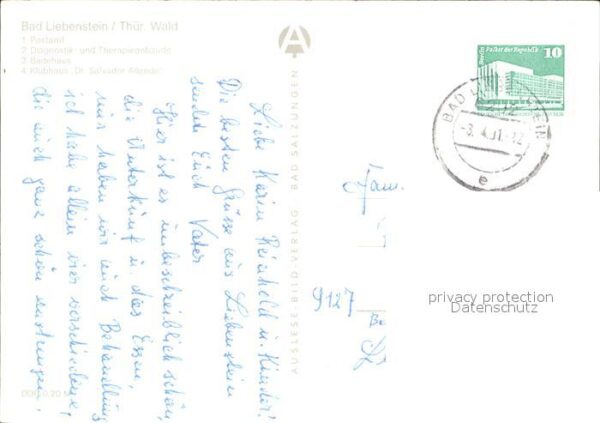 Bad Liebenstein / Thür. Wald
1 Postamt
2 Diagnostik- und Therapiegebäude
3 Badehaus
4 Klubhaus „Dr. Salvador Allende"
Liebe Karin Reinhold u. Kinder!
Die besten Grüsse aus Liebenstein
sendet Euch Vater
Hier ist es unbeschreiblich schön,
die Unterkunft u. das Essen,
nur haben wir auch Behandlung
ich habe allein vier verschiedene,
die mich ganz schön anstrengen.
DDR 0,20 M
AUSLESE-BILD-VERLAG BAD SALZUNGEN
Palast der Republik
10
BAD LIEBENSTEIN
-3. 4. 81-12
e
Fam.
9127
privacy protection
Datenschutz